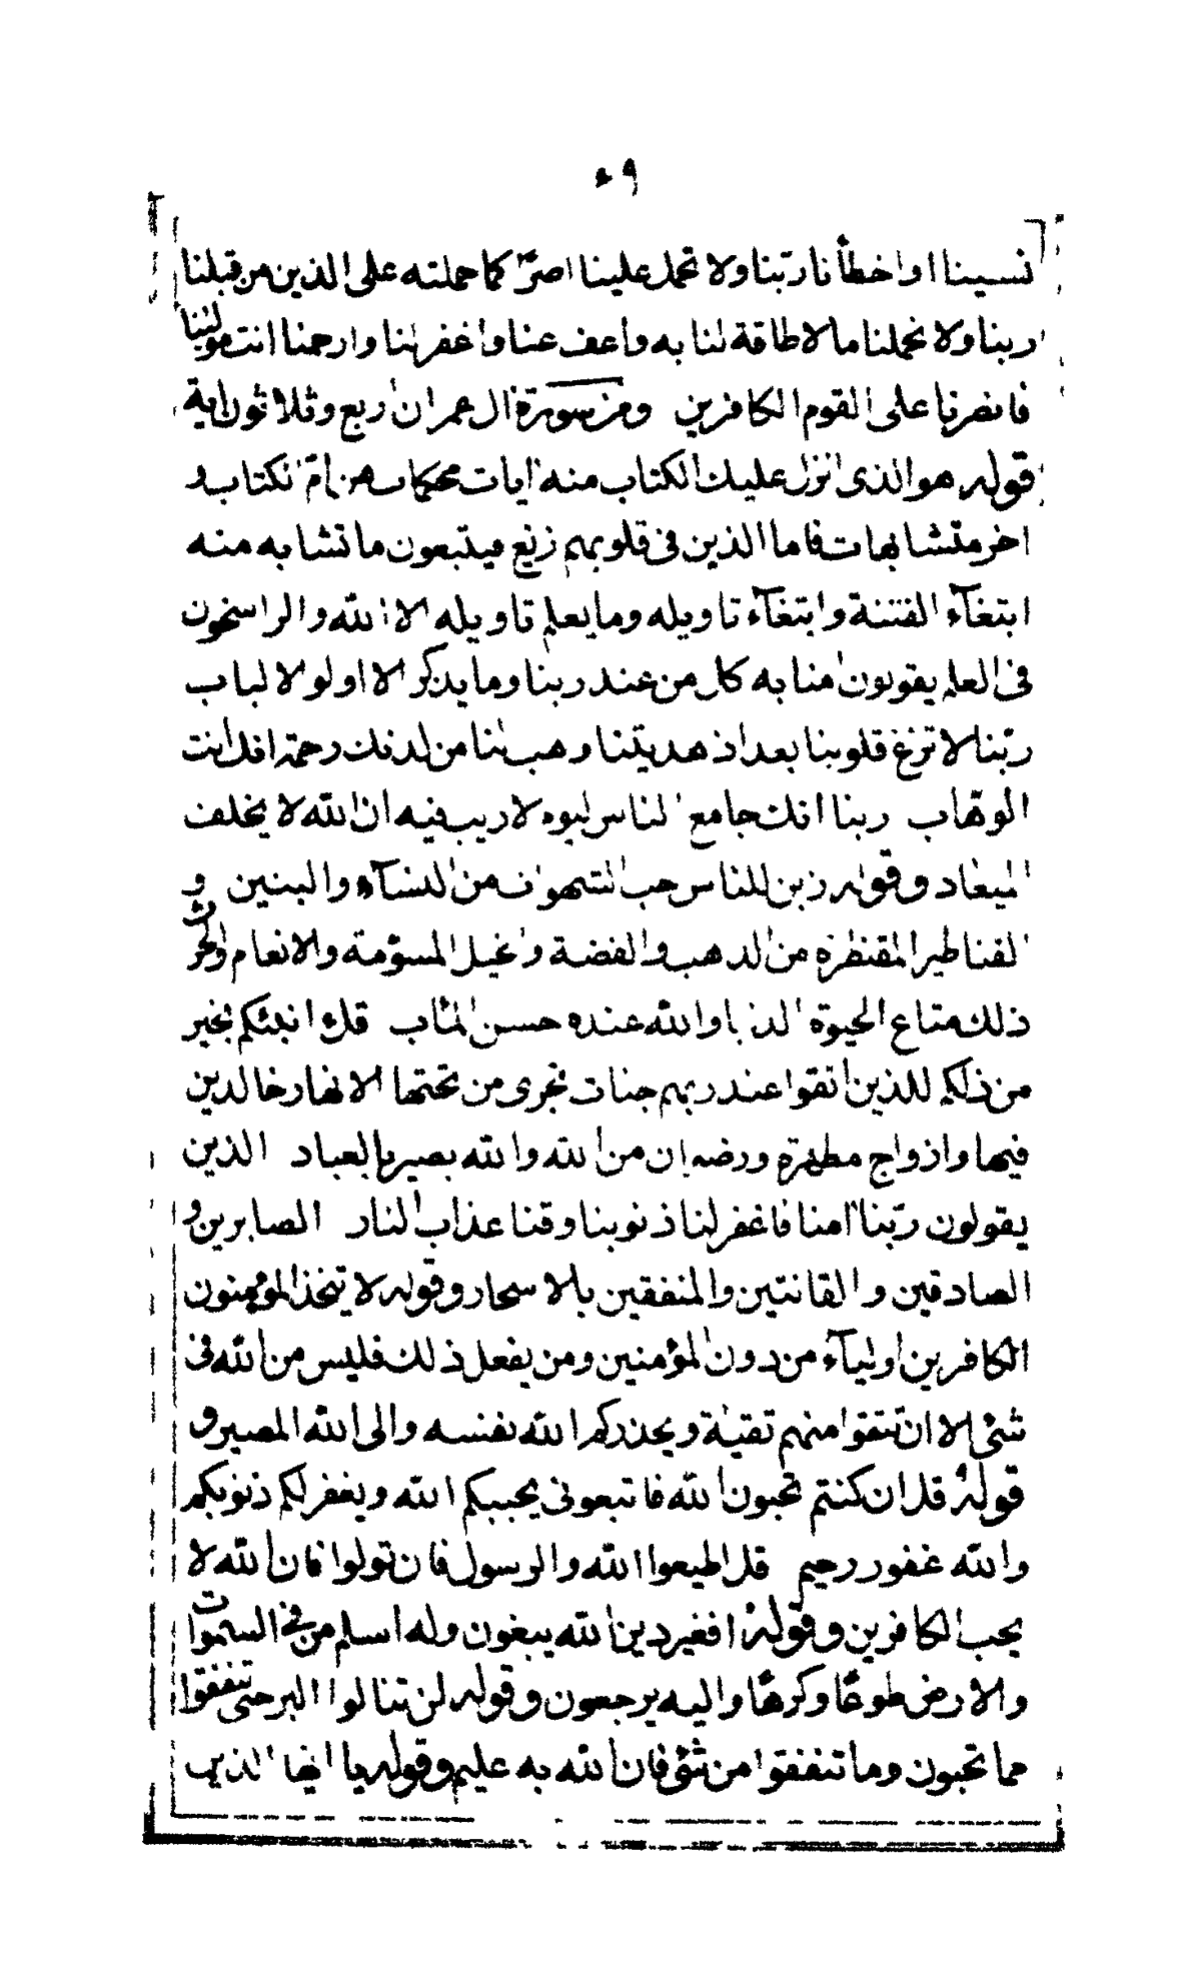 ٤٩
نسينا او اخطأنا ربّنا ولا تحمل علينا اصرًا كما حملته على الذين من قبلنا
ربنا ولا تحملنا ما لا طاقة لنا به واعف عنا واغفر لنا وارحمنا انت مولٰينا
فانصرنا على القوم الكافرين ومن سورة ال عمران اربع وثلاثون اية
قوله هو الذى انزل عليك الكتاب منه ايات محكمات هن امّ الكتاب و
اخر متشابهات فاما الذين فى قلوبهم زيغ فيتبعون ما تشابه منه
ابتغآء الفتنة وابتغآء تاويله وما يعلم تاويله الا الله والراسخون
فى العلم يقولون امنا به كل من عند ربنا وما يذكر الا اولو الالباب
ربّنا لا تزغ قلوبنا بعد اذ هديتنا وهب لنا من لدنك رحمة انك انت
الوهّاب ربنا انك جامع الناس ليوم لا ريب فيه ان الله لا يخلف
الميعاد وقوله زين للناس حب الشهوات من النسآء والبنين و
القناطير المقنطرة من الذهب والفضة والخيل المسوّمة والانعام والحرث
ذلك متاع الحيوة الدنيا والله عنده حسن المٰاب قل ءانبئكم بخير
من ذلكم للذين اتقوا عند ربهم جنات تجرى من تحتها الانهار خالدين
فيها وازواج مطهرة ورضوان من الله والله بصير بالعباد الذين
يقولون ربّنا امنا فاغفر لنا ذنوبنا وقنا عذاب النار الصابرين و
الصادقين والقانتين والمنفقين بالاسحار وقوله لا يتخذ المؤمنون
الكافرين اوليآء من دون المؤمنين ومن يفعل ذلك فليس من الله فى
شئ الا ان تتقوا منهم تقيٰة ويحذركم الله نفسه والى الله المصير و
قوله قل ان كنتم تحبون الله فاتبعونى يحببكم الله ويغفر لكم ذنوبكم
والله غفور رحيم قل اطيعوا الله والرسول فان تولوا فان الله لا
يحب الكافرين وقوله افغير دين الله يبغون وله اسلم من فى السمٰوات
والارض طوعًا وكرهًا واليه يرجعون وقوله لن تنالوا البر حتى تنفقوا
مما تحبون وما تنفقوا من شئ فان الله به عليم وقوله يا ايها الذين